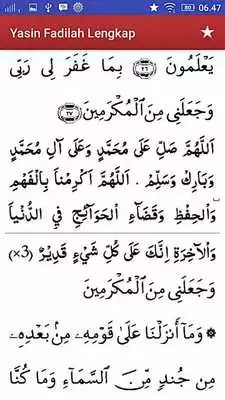 06.47
Yasin Fadilah Lengkap
يَعْلَمُونَ ﴿٢٦﴾ بِمَا غَفَرَ لِى رَبِّى
وَجَعَلَنِى مِنَ ٱلْمُكْرَمِينَ ﴿٢٧﴾
اَللّٰهُمَّ صَلِّ عَلَى مُحَمَّدٍ وَعَلَى آلِ مُحَمَّدٍ
وَبَارِكْ وَسَلِّمْ . اَللّٰهُمَّ اَكْرِمْنَا بِالْفَهْمِ
وَالْحِفْظِ وَقَضَاءِ الْحَوَائِجِ فِي الدُّنْيَا
وَالْاٰخِرَةِ اِنَّكَ عَلَى كُلِّ شَيْءٍ قَدِيْرٌ (٣×)
وَجَعَلَنِى مِنَ ٱلْمُكْرَمِينَ
۞ وَمَآ أَنزَلْنَا عَلَىٰ قَوْمِهِۦ مِنۢ بَعْدِهِۦ
مِن جُندٍ مِّنَ ٱلسَّمَآءِ وَمَا كُنَّا